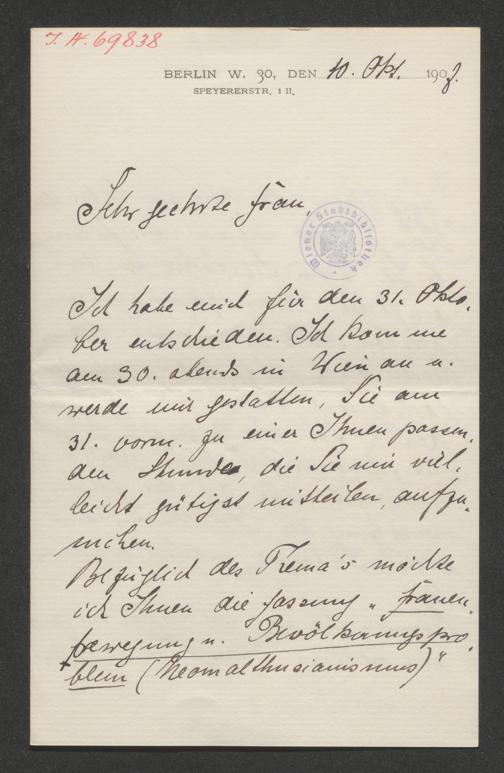 J. N. 69838
BERLIN W. 30, DEN 10. Okt. 1907.
SPEYERERSTR. 1 II.
Sehr geehrte Frau,
Wiener Stadtbibliothek
Ich habe mich für den 31. Okto-
ber entschieden. Ich komme
am 30. abends in Wien an u.
werde mir gestatten, Sie am
31. vorm. zu einer Ihnen passen-
den Stunde, die Sie mir viel-
leicht gütigst mittheilen, aufzu-
suchen.
Bezüglich des Thema's möchte
ich Ihnen die Fassung „Frauen-
bewegung u. Bevölkerungspro-
blem (Neomalthusianismus)"